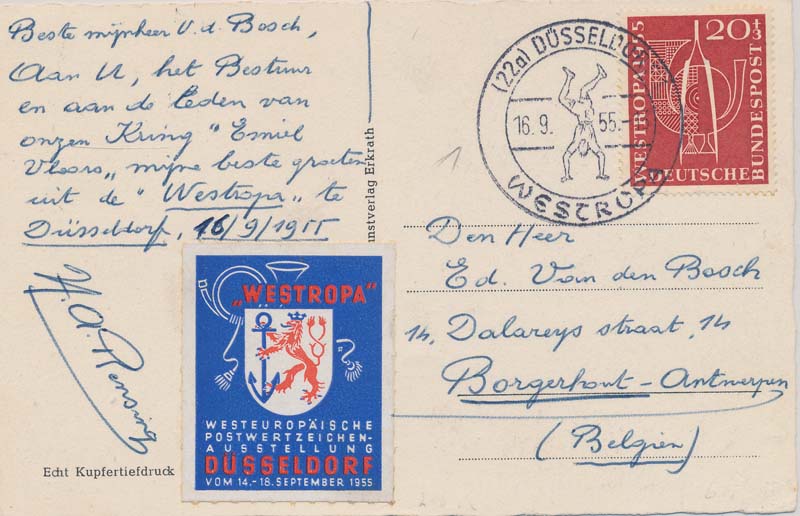 Beste mijnheer V. d. Bosch,
Aan U, het Bestuur
en aan de leden van
onzen Kring "Emiel
Vloors" mijne beste groeten
uit de "Westropa" te
Düsseldorf, 16/9/1955
H. A. Rensing
Echt Kupfertiefdruck
„WESTROPA"
WESTEUROPÄISCHE
POSTWERTZEICHEN-
AUSSTELLUNG
DÜSSELDORF
VOM 14.-18. SEPTEMBER 1955
unstverlag Erkrath
(22a) DÜSSELDO
16.9. 55.-
WESTROPA
WESTROPA 1955
20+3
DEUTSCHE
BUNDESPOST
1
Den Heer
Ed. Van den Bosch
14, Dalareys straat, 14
Borgerhout-Antwerpen
(Belgien)